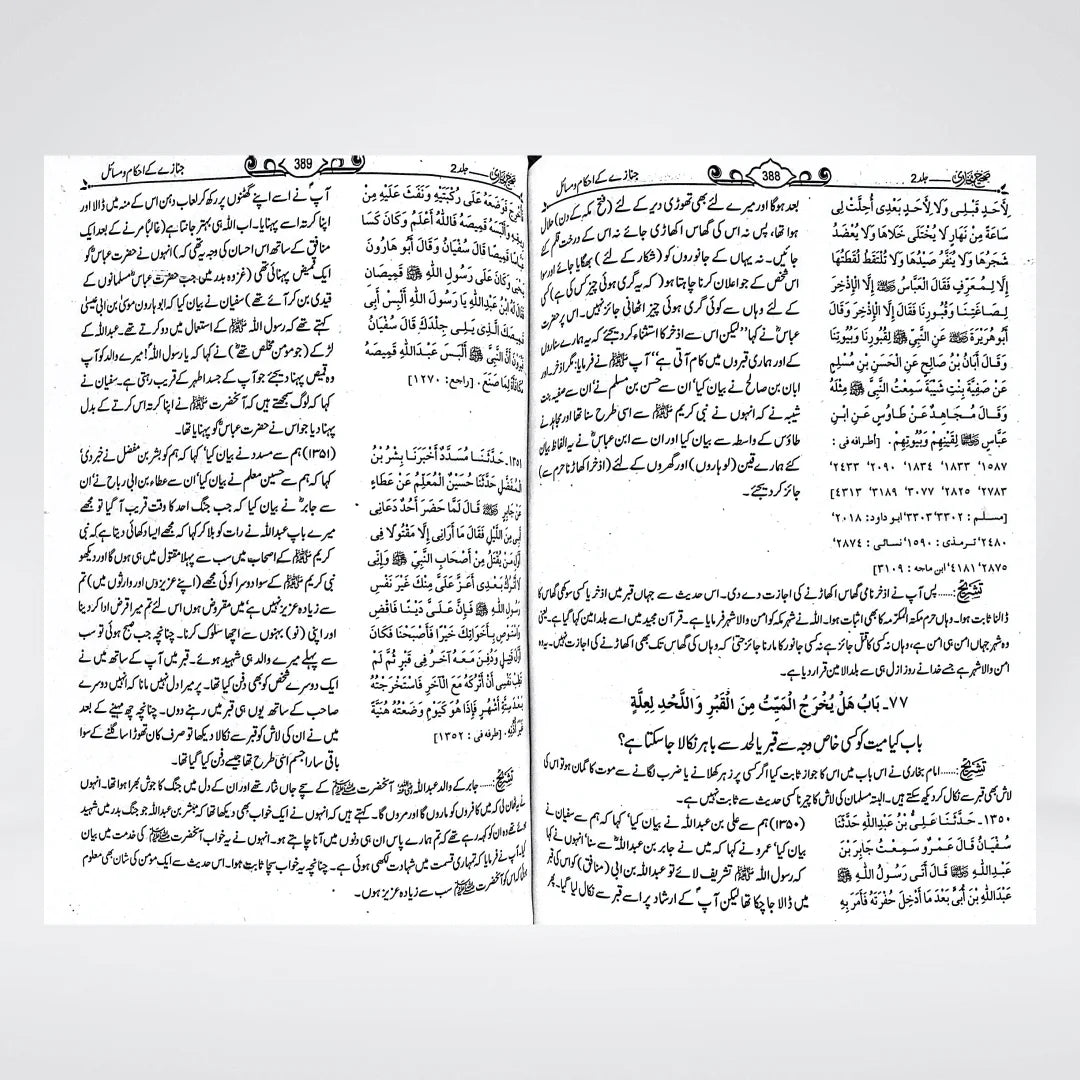 صحیح بخاری ـــ جلد 2
388
جنازے کے احکام و مسائل
لِأَحَدٍ قَبْلِي وَلَا لِأَحَدٍ بَعْدِي أُحِلَّتْ لِي
سَاعَةً مِنْ نَهَارٍ لَا يُخْتَلَى خَلَاهَا وَلَا يُعْضَدُ
شَجَرُهَا وَلَا يُنَفَّرُ صَيْدُهَا وَلَا تُلْتَقَطُ لُقَطَتُهَا
إِلَّا لِمُعَرِّفٍ فَقَالَ الْعَبَّاسُ ؓ إِلَّا الْإِذْخِرَ
لِصَاغَتِنَا وَقُبُورِنَا فَقَالَ إِلَّا الْإِذْخِرَ وَقَالَ
أَبُو هُرَيْرَةَ ؓ عَنِ النَّبِيِّ ﷺ لِقُبُورِنَا وَبُيُوتِنَا
وَقَالَ أَبَانُ بْنُ صَالِحٍ عَنِ الْحَسَنِ بْنِ مُسْلِمٍ
عَنْ صَفِيَّةَ بِنْتِ شَيْبَةَ سَمِعْتُ النَّبِيَّ ﷺ مِثْلَهُ
وَقَالَ مُجَاهِدٌ عَنْ طَاوُسٍ عَنِ ابْنِ
عَبَّاسٍ ؓ لِقَيْنِهِمْ وَبُيُوتِهِمْ. [أطرافه في :
١٥٨٧، ١٨٣٣، ١٨٣٤، ٢٠٩٠، ٢٤٣٣،
٢٧٨٣، ٢٨٢٥، ٣٠٧٧، ٣١٨٩، ٤٣١٣]
[مسلم : ٣٣٠٢، ٣٣٠٣؛ ابو داود: ٢٠١٨،
٢٤٨٠؛ ترمذی : ١٥٩٠؛ نسائی : ٢٨٧٤،
٢٨٧٥، ٤١٨١؛ ابن ماجه : ٣١٠٩]
بعد ہوگا اور میرے لئے بھی تھوڑی دیر کے لئے (فتح مکہ کے دن) حلال
ہوا تھا، پس نہ اس کی گھاس اکھاڑی جائے نہ اس کے درخت قلم کئے
جائیں۔ نہ یہاں کے جانوروں کو (شکار کے لئے) بھگایا جائے اور سوا
اس شخص کے جو اعلان کرنا چاہتا ہو (کہ یہ گری ہوئی چیز کس کی ہے) کسی
کے لئے وہاں سے کوئی گری ہوئی چیز اٹھانی جائز نہیں۔ اس پر حضرت
عباسؓ نے کہا ”لیکن اس سے اذخر کا استثناء کر دیجئے کہ یہ ہمارے سناروں
کے اور ہماری قبروں میں کام آتی ہے“ آپ ﷺ نے فرمایا: مگر اذخر اور
ابان بن صالح نے بیان کیا، ان سے حسن بن مسلم نے، ان سے صفیہ بنت
شیبہ نے کہ انہوں نے نبی کریم ﷺ سے اسی طرح سنا تھا اور مجاہد نے
طاؤس کے واسطہ سے بیان کیا اور ان سے ابن عباسؓ نے یہ الفاظ بیان
کئے ہمارے قین (لوہاروں) اور گھروں کے لئے (اذخر اکھاڑنا حرم سے)
جائز کر دیجئے۔
تشریح:..... پس آپ نے اذخر نامی گھاس اکھاڑنے کی اجازت دے دی۔ اس حدیث سے جہاں قبر میں اذخر یا کسی سوکھی گھاس کا
ڈالنا ثابت ہوا۔ وہاں حرم مکۃ المکرمہ کا بھی اثبات ہوا۔ اللہ نے شہر مکہ کو امن والا شہر فرمایا ہے۔ قرآن مجید میں اسے بلد امین کہا گیا ہے۔ یعنی
وہ شہر جہاں امن ہی امن ہے، وہاں نہ کسی کا قتل جائز ہے نہ کسی جانور کا مارنا جائز حتیٰ کہ وہاں کی گھاس تک بھی اکھاڑنے کی اجازت نہیں۔ یہ وہ
امن والا شہر ہے جسے خدا نے روز ازل ہی سے بلد الامین قرار دیا ہے۔
٧٧۔ بَابُ هَلْ يُخْرَجُ الْمَيِّتُ مِنَ الْقَبْرِ وَاللَّحْدِ لِعِلَّةٍ
باب کیا میت کو کسی خاص وجہ سے قبر یا لحد سے باہر نکالا جا سکتا ہے؟
تشریح:..... امام بخاری نے اس باب میں اس کا جواز ثابت کیا اگر کسی پر زہر کھلانے یا ضرب لگانے سے موت کا گمان ہو تو اس کی
لاش بھی قبر سے نکال کر دیکھ سکتے ہیں۔ البتہ مسلمان کی لاش کا چیرنا کسی حدیث سے ثابت نہیں ہے۔
١٣٥٠۔ حَدَّثَنَا عَلِيُّ بْنُ عَبْدِاللَّهِ حَدَّثَنَا
سُفْيَانُ قَالَ عَمْرٌو سَمِعْتُ جَابِرَ بْنَ
عَبْدِاللَّهِ ؓ قَالَ أَتَى رَسُولُ اللَّهِ ﷺ
عَبْدَاللَّهِ بْنَ أُبَيٍّ بَعْدَ مَا أُدْخِلَ حُفْرَتَهُ فَأَمَرَ بِهِ
(۱۳۵۰) ہم سے علی بن عبداللہ نے بیان کیا، کہا کہ ہم سے سفیان نے
بیان کیا، عمرو نے کہا کہ میں نے جابر بن عبداللہؓ سے سنا، انہوں نے کہا
کہ رسول اللہ ﷺ تشریف لائے تو عبداللہ بن ابی (منافق) کو اس کی قبر
میں ڈالا جا چکا تھا لیکن آپؐ کے ارشاد پر اسے قبر سے نکال لیا گیا۔ پھر
صحیح بخاری ـــ جلد 2
389
جنازے کے احکام و مسائل
فَأُخْرِجَ فَوَضَعَهُ عَلَى رُكْبَتَيْهِ وَنَفَثَ عَلَيْهِ مِنْ
رِيقِهِ وَأَلْبَسَهُ قَمِيصَهُ فَاللَّهُ أَعْلَمُ وَكَانَ كَسَا
عَبَّاسًا قَمِيصًا قَالَ سُفْيَانُ وَقَالَ أَبُو هَارُونَ
يَحْيَى وَكَانَ عَلَى رَسُولِ اللَّهِ ﷺ قَمِيصَانِ
فَقَالَ لَهُ ابْنُ عَبْدِاللَّهِ يَا رَسُولَ اللَّهِ أَلْبِسْ أَبِي
قَمِيصَكَ الَّذِي يَلِي جِلْدَكَ قَالَ سُفْيَانُ
فَيُرَوْنَ أَنَّ النَّبِيَّ ﷺ أَلْبَسَ عَبْدَاللَّهِ قَمِيصَهُ
مُكَافَأَةً لِمَا صَنَعَ. [راجع: ١٢٧٠]
آپؐ نے اسے اپنے گھٹنوں پر رکھ کر لعاب دہن اس کے منہ میں ڈالا اور
اپنا کرتہ اسے پہنایا۔ اب اللہ ہی بہتر جانتا ہے (غالباً مرنے کے بعد ایک
منافق کے ساتھ اس احسان کی وجہ یہ تھی کہ) انہوں نے حضرت عباسؓ کو
ایک قمیض پہنائی تھی (غزوہ بدر میں جب حضرت عباسؓ مسلمانوں کے
قیدی بن کر آئے تھے) سفیان نے بیان کیا کہ ابو ہارون موسیٰ بن ابی عیسیٰ
کہتے تھے کہ رسول اللہ ﷺ کے استعمال میں دو کرتے تھے۔ عبداللہ کے
لڑکے (جو مومن مخلص تھےؓ) نے کہا کہ یا رسول اللہ! میرے والد کو آپ
وہ قمیص پہنا دیجئے جو آپ کے جسد اطہر کے قریب رہتی ہے۔ سفیان نے
کہا کہ لوگ سمجھتے ہیں کہ آنحضرت ﷺ نے اپنا کرتہ اس کرتے کے بدل
پہنا دیا جو اس نے حضرت عباسؓ کو پہنایا تھا۔
١٣٥١۔ حَدَّثَنَا مُسَدَّدٌ أَخْبَرَنَا بِشْرُ بْنُ
الْمُفَضَّلِ حَدَّثَنَا حُسَيْنٌ الْمُعَلِّمُ عَنْ عَطَاءٍ
عَنْ جَابِرٍ ؓ قَالَ لَمَّا حَضَرَ أُحُدٌ دَعَانِي
أَبِي مِنَ اللَّيْلِ فَقَالَ مَا أُرَانِي إِلَّا مَقْتُولًا فِي
أَوَّلِ مَنْ يُقْتَلُ مِنْ أَصْحَابِ النَّبِيِّ ﷺ وَإِنِّي
لَا أَتْرُكُ بَعْدِي أَعَزَّ عَلَيَّ مِنْكَ غَيْرَ نَفْسِ
رَسُولِ اللَّهِ ﷺ فَإِنَّ عَلَيَّ دَيْنًا فَاقْضِ
وَاسْتَوْصِ بِأَخَوَاتِكَ خَيْرًا فَأَصْبَحْنَا فَكَانَ
أَوَّلَ قَتِيلٍ وَدُفِنَ مَعَهُ آخَرُ فِي قَبْرٍ ثُمَّ لَمْ
تَطِبْ نَفْسِي أَنْ أَتْرُكَهُ مَعَ الْآخَرِ فَاسْتَخْرَجْتُهُ
بَعْدَ سِتَّةِ أَشْهُرٍ فَإِذَا هُوَ كَيَوْمِ وَضَعْتُهُ هُنَيَّةً
غَيْرَ أُذُنِهِ. [طرفه في : ١٣٥٢]
(۱۳۵۱) ہم سے مسدد نے بیان کیا، کہا کہ ہم کو بشر بن مفضل نے خبر دی،
کہا کہ ہم سے حسین معلم نے بیان کیا، ان سے عطاء بن ابی رباح نے، ان
سے جابرؓ نے بیان کیا کہ جب جنگ احد کا وقت قریب آ گیا تو
میرے باپ عبداللہ نے رات کو بلا کر کہا کہ مجھے ایسا دکھائی دیتا ہے کہ نبی
کریم ﷺ کے اصحاب میں سب سے پہلا مقتول میں ہی ہوں گا اور دیکھو
نبی کریم ﷺ کے سوا دوسرا کوئی مجھے (اپنے عزیزوں اور وارثوں میں) تم
سے زیادہ عزیز نہیں ہے، میں مقروض ہوں اس لئے تم میرا قرض ادا کر دینا
اور اپنی (نو) بہنوں سے اچھا سلوک کرنا۔ چنانچہ جب صبح ہوئی تو سب
سے پہلے میرے والد ہی شہید ہوئے۔ قبر میں آپ کے ساتھ میں نے
ایک دوسرے شخص کو بھی دفن کیا تھا۔ پر میرا دل نہیں مانا کہ انہیں دوسرے
صاحب کے ساتھ یوں ہی قبر میں رہنے دوں۔ چنانچہ چھ مہینے کے بعد
میں نے ان کی لاش کو قبر سے نکالا دیکھا تو صرف کان تھوڑا سا گلنے کے سوا
باقی سارا جسم اسی طرح تھا جیسے دفن کیا گیا تھا۔
تشریح:..... جابر کے والد عبداللہؓ آنحضرت ﷺ کے سچے جاں نثار تھے اور ان کے دل میں جنگ کا جوش بھرا ہوا تھا۔ انہوں
نے یہ ٹھان لی کہ میں کافروں کو ماروں گا اور مروں گا۔ کہتے ہیں کہ انہوں نے ایک خواب بھی دیکھا تھا کہ مبشر بن عبداللہ جو جنگ بدر میں شہید
ہوئے تھے وہ ان کو کہہ رہے تھے کہ تم ہمارے پاس ان ہی دنوں میں آنا چاہتے ہو۔ انہوں نے یہ خواب آنحضرت ﷺ کی خدمت میں بیان
کیا۔ آپ نے فرمایا کہ تمہاری قسمت میں شہادت لکھی ہوئی ہے۔ چنانچہ یہ خواب سچا ثابت ہوا۔ اس حدیث سے ایک مؤمن کی شان بھی معلوم
ہوئی کہ اس کو آنحضرت ﷺ سب سے زیادہ عزیز ہوں۔